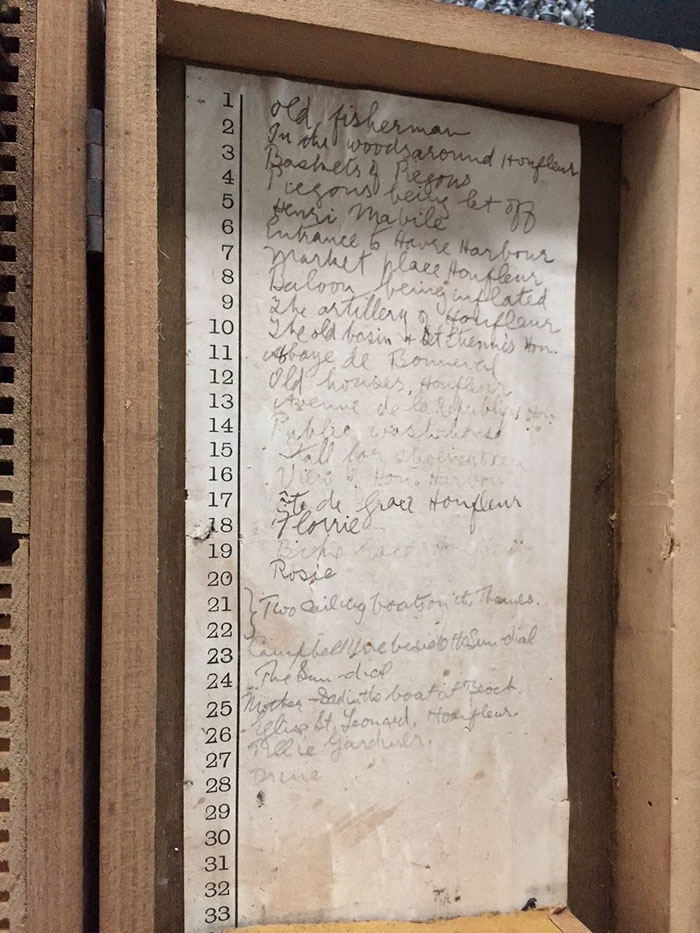 1 Old fisherman
2 In the woods around Honfleur
3 Baskets of Pegons
4 Piegons being let off
5 Henri Mabile
6 Entrance to Havre Harbour
7 Market place Honfleur
8 Baloon being inflated
9 The artillery of Honfleur
10 The old basin + St Etiennes Hon.
11 Abbaye de Bonneval
12 Old houses, Honfleur
13 Avenue de la Republique Hon
14 Public wash-house
15 Stall for
16 View of Hon. Harbour
17 Côte de Grace Honfleur
18 Florrie
19 Bike race Honfleur
20 Rosie
21 Two sailing boats on the Thames.
22
23 Campbell beside the Sun-dial
24 The Sun-dial
25 Mother + Dad in the boat at Beach.
26 Eglise St. Leonard, Honfleur.
27 Tillie Gardner.
28
29
30
31
32
33